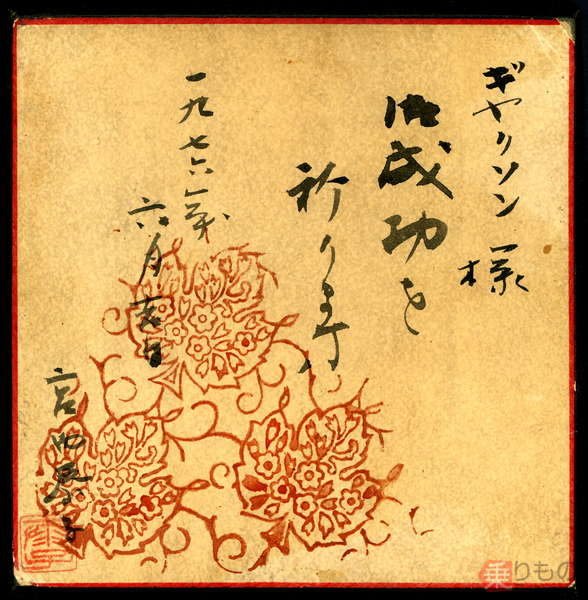 ギャリソン 様
御成功を
祈ります
一九七六年
六月吉日
宮
子
乗りもの